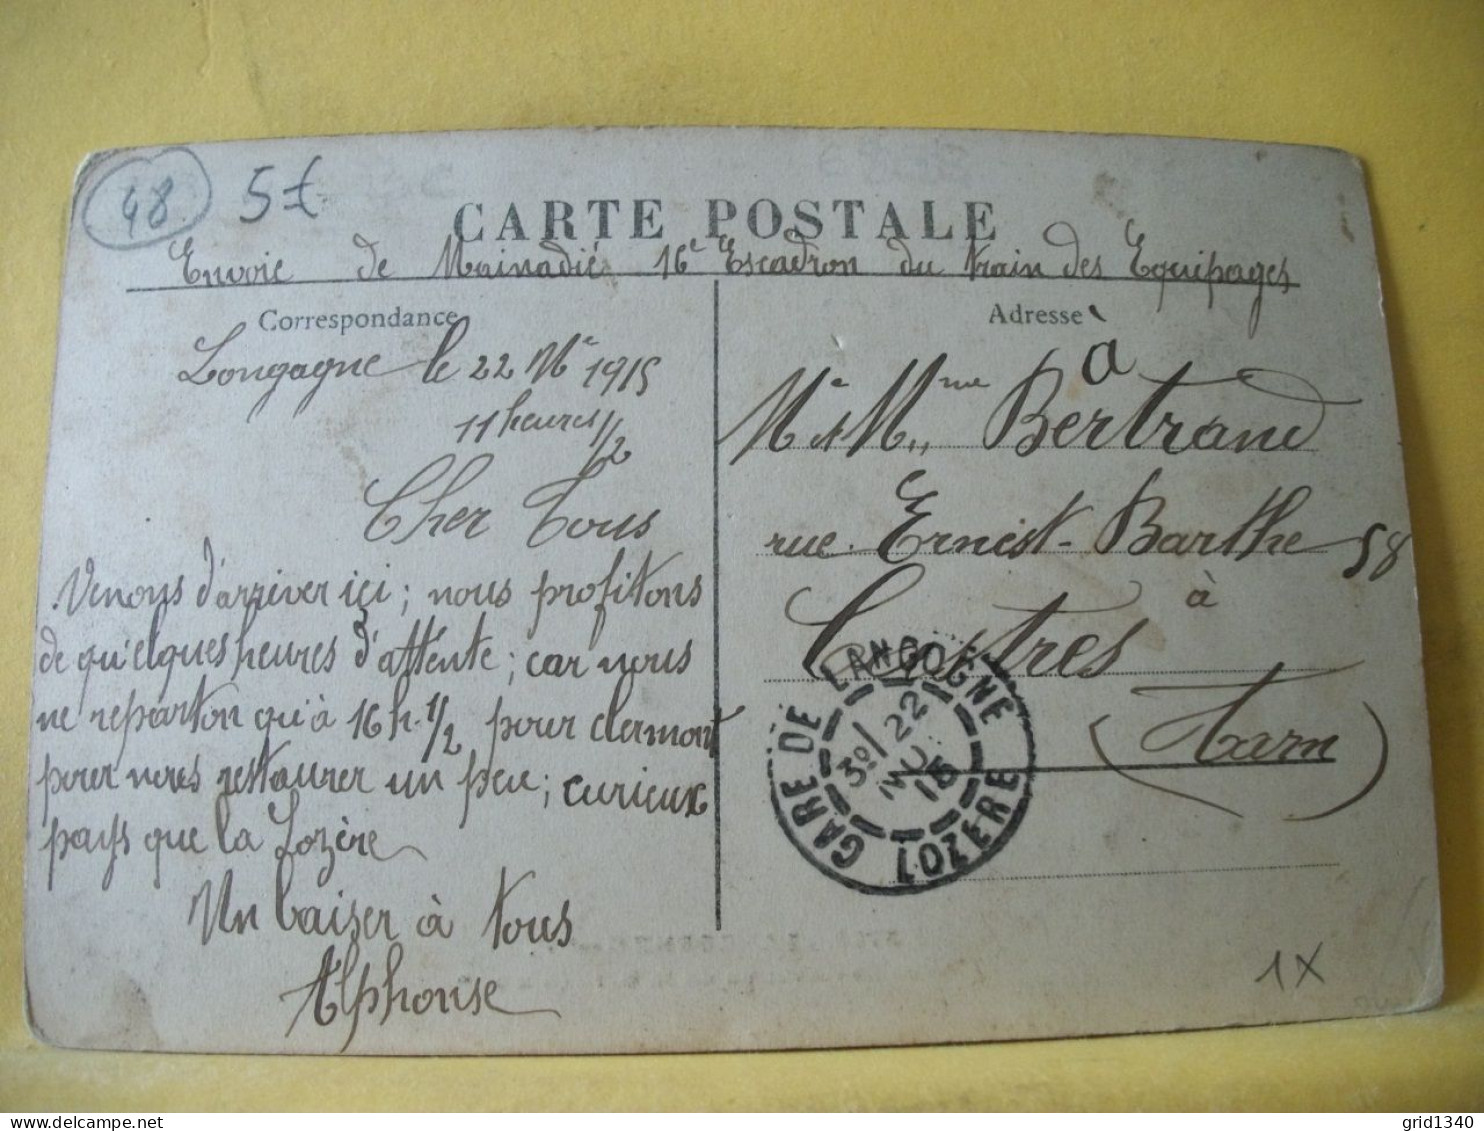 48 5€
CARTE POSTALE
Envoie de Mainadié 16e Escadron du train des Equipages
Correspondance
Longagne le 22 Me 1915
11 heures 1/2
Cher Tous
Venons d'arriver ici; nous profitons
de quelques heures d'attente; car nous
ne reparton qu'à 16 h. 1/2 pour clermont
pour nous restaurer un peu; curieux
pays que la Lozère
Un baiser à tous
Alphonse
Adresse
a
Mr & Mme Bertrand
rue Ernest-Barthe 58
à
Castres
(Tarn)
GARE DE LANGOGNE
3e/22
15
LOZERE
1X
grid1340